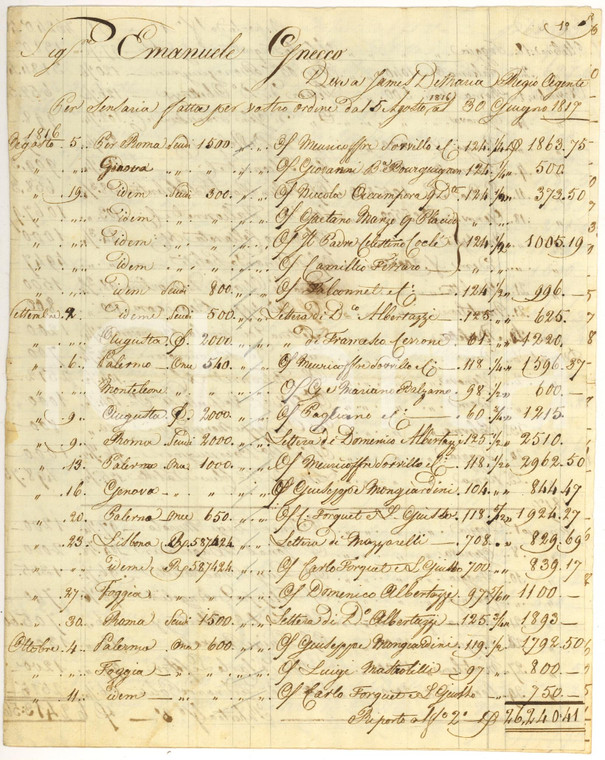 1º
Sig.r Emanuele Gnecco
Deve a James DeMaria Regio Agente
Per Senseria fatta per vostro ordine da 15 Agosto 1816 a 30 Giugno 1817
1816
Agosto 5. Per Roma Scudi 1500 C/ Meuricoffre Sorvillo e C. 124.½ 1863.75
" " Genova " " C/ Giovanni B.a Bourguignon 125 500.
" 19. Idem Scudi 300. C/ Nicola 124.½ 373.50
" " Idem " " C/ Gaetano Marzo q Placido
" " Idem " " C/ Il Padre Celestino Cocle 124.½ 1005.19
" " Idem " " C/ Camillo Ferraro
" " Idem Scudi 800. C/ Falconnet e C. 124.½ 996.
Settembre 2. Idem Scudi 500. Lettera di D.o Albertazzi 125. 625.
" " Augusta 2000. " di Francesco Ceroni 61 1220.
" 6. Palermo Onze 540. C/ Meuricoffre Sorvillo e C. 118.½ 1596.37
" " Monteleone " " C/ G. e Mariano Balzamo 98.½ 600.
" 9. Augusta 2000. C/ Pagliano e C. 60.¾ 1215.
" 9. Roma Scudi 2000. Lettera di Domenico Albertazzi 125.½ 2510.
" 13. Palermo Onze 1000. C/ Meuricoffre Sorvillo e C. 118.½ 2962.50
" 16. Genova " " C/ Giuseppe Mongiardini 104. 844.47
" 20. Palermo Onze 650. C/ C. Forquet e L. Giusso 118.½ 1924.27
" 23. Lisbona Rs 587424. Lettera di Mazzarelli 708. 829.69
" " Idem Rs 587424. C/ Carlo Forquet e L. Giusso 700. 839.17
" 27. Foggia " " C/ Domenico Albertazzi 97 1100
" 30. Roma Scudi 1500. Lettera di D.o Albertazzi 125. 1893
Ottobre 4. Palermo Onze 600. C/ Giuseppe Mongiardini 119.½ 1792.50
" " Foggia " " C/ Luigi Mastrolilli 97 800
" 11. Idem " " C/ Carlo Forquet e L. Giusso 750
Riporto a fo. 2º 26,240.41